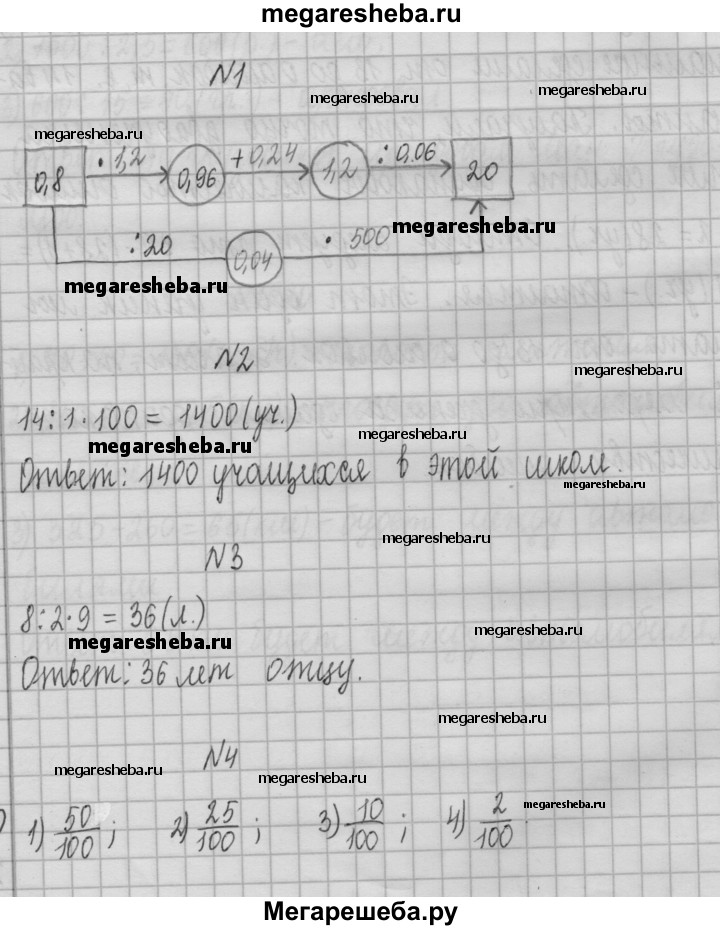 megaresheba.ru
N1
megaresheba.ru
megaresheba.ru
megaresheba.ru
0,8 · 1,2 0,96 + 0,24 1,2 : 0,06 20
megaresheba.ru
: 20 0,04 · 500
megaresheba.ru
N2
megaresheba.ru
14 : 1 · 100 = 1400 (уч.)
megaresheba.ru
megaresheba.ru
Ответ: 1400 учащихся в этой школе.
megaresheba.ru
megaresheba.ru
N3
8 : 2 · 9 = 36 (л.)
megaresheba.ru
megaresheba.ru
Ответ: 36 лет отцу.
megaresheba.ru
N4
megaresheba.ru
megaresheba.ru
megaresheba.ru
1) 50/100 ; 2) 25/100 ; 3) 10/100 ; 4) 2/100 .
Мегарешеба.ру